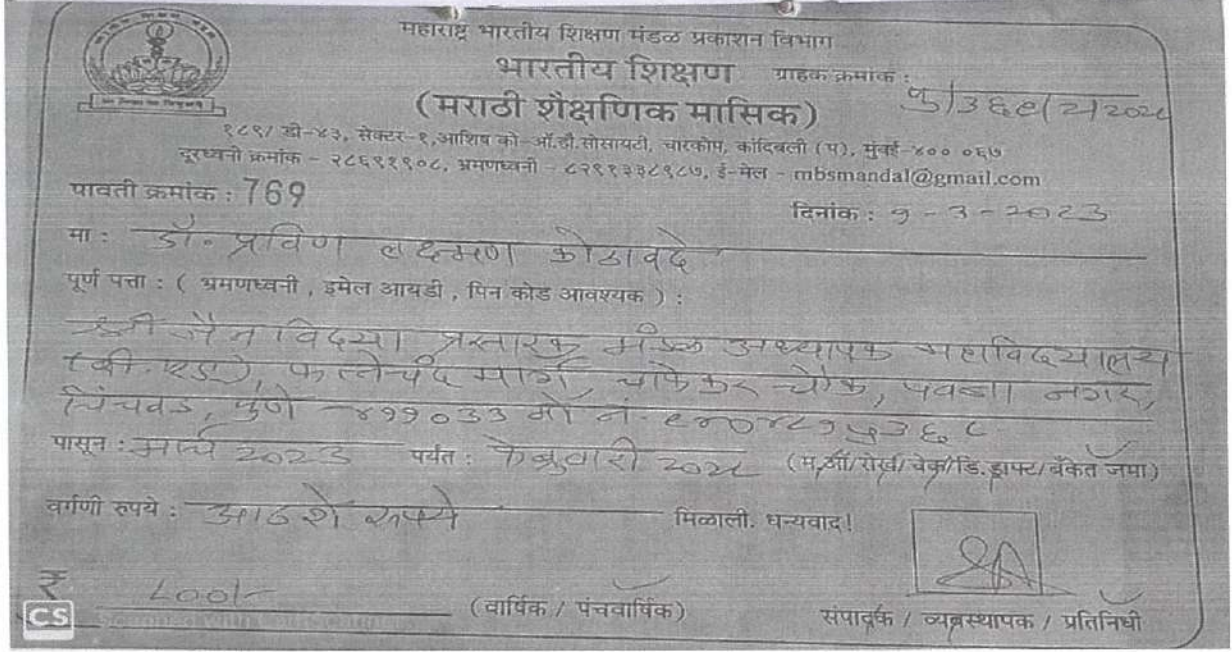 महाराष्ट्र भारतीय शिक्षण मंडळ प्रकाशन विभाग
भारतीय शिक्षण ग्राहक क्रमांक : पु/३६९/२/२०२८
(मराठी शैक्षणिक मासिक)
१८९/ डी-४३, सेक्टर-१,आशिष को-ऑ.हौ.सोसायटी, चारकोप, कांदिवली (प), मुंबई-४०० ०६७
दूरध्वनी क्रमांक - २८६९१९०८, भ्रमणध्वनी - ८२९१३३८९८७, ई-मेल - mbsmandal@gmail.com
पावती क्रमांक : 769
दिनांक : १ - ३ - २०२३
मा : डॉ. प्रविण लक्ष्मण कोठावदे
पूर्ण पत्ता : ( भ्रमणध्वनी , इमेल आयडी , पिन कोड आवश्यक ) :
श्री जैन विद्या प्रसारक मंडळ अध्यापक महाविद्यालय
(बी.एड), फत्तेचंद मार्ग, चाफेकर चौक, पवना नगर,
चिंचवड, पुणे - ४११०३३ मो नं.
पासून : मार्च २०२३ पर्यंत : फेब्रुवारी २०२८ (म.ऑ/रोख/चेक/डि.ड्राफ्ट/बँकेत जमा)
वर्गणी रुपये : आठशे रुपये मिळाली. धन्यवाद!
₹ ८००/- (वार्षिक / पंचवार्षिक) संपादक / व्यवस्थापक / प्रतिनिधी
CS